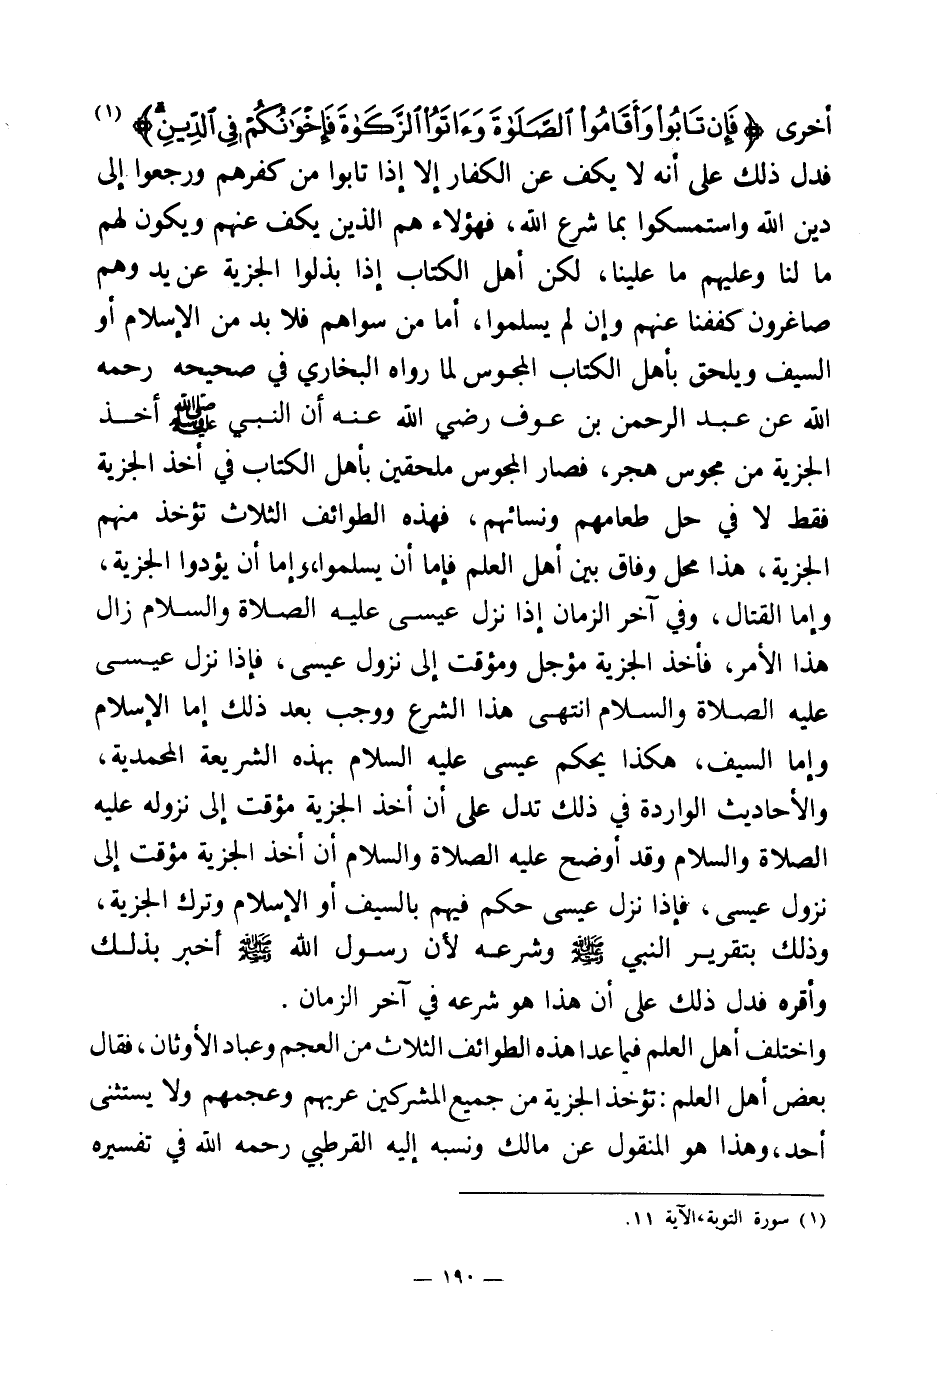 أخرى ﴿ فَإِن تَابُوا۟ وَأَقَامُوا۟ ٱلصَّلَوٰةَ وَءَاتَوُا۟ ٱلزَّكَوٰةَ فَإِخْوَٰنُكُمْ فِى ٱلدِّينِ ۗ ﴾ (١)
فدل ذلك على أنه لا يكف عن الكفار إلا إذا تابوا من كفرهم ورجعوا إلى
دين الله واستمسكوا بما شرع الله، فهؤلاء هم الذين يكف عنهم ويكون لهم
ما لنا وعليهم ما علينا، لكن أهل الكتاب إذا بذلوا الجزية عن يد وهم
صاغرون كففنا عنهم وإن لم يسلموا، أما من سواهم فلا بد من الإسلام أو
السيف ويلحق بأهل الكتاب المجوس لما رواه البخاري في صحيحه رحمه
الله عن عبد الرحمن بن عوف رضي الله عنه أن النبي ﷺ أخذ
الجزية من مجوس هجر، فصار المجوس ملحقين بأهل الكتاب في أخذ الجزية
فقط لا في حل طعامهم ونسائهم، فهذه الطوائف الثلاث تؤخذ منهم
الجزية، هذا محل وفاق بين أهل العلم فإما أن يسلموا، وإما أن يؤدوا الجزية،
وإما القتال، وفي آخر الزمان إذا نزل عيسى عليه الصلاة والسلام زال
هذا الأمر، فأخذ الجزية مؤجل ومؤقت إلى نزول عيسى، فإذا نزل عيسى
عليه الصلاة والسلام انتهى هذا الشرع ووجب بعد ذلك إما الإسلام
وإما السيف، هكذا يحكم عيسى عليه السلام بهذه الشريعة المحمدية،
والأحاديث الواردة في ذلك تدل على أن أخذ الجزية مؤقت إلى نزوله عليه
الصلاة والسلام وقد أوضح عليه الصلاة والسلام أن أخذ الجزية مؤقت إلى
نزول عيسى، فإذا نزل عيسى حكم فيهم بالسيف أو الإسلام وترك الجزية،
وذلك بتقرير النبي ﷺ وشرعه لأن رسول الله ﷺ أخبر بذلك
وأقره فدل ذلك على أن هذا هو شرعه في آخر الزمان .
واختلف أهل العلم فيما عدا هذه الطوائف الثلاث من العجم وعباد الأوثان، فقال
بعض أهل العلم : تؤخذ الجزية من جميع المشركين عربهم وعجمهم ولا يستثنى
أحد، وهذا هو المنقول عن مالك ونسبه إليه القرطبي رحمه الله في تفسيره
(١) سورة التوبة، الآية ١١.
— ١٩٠ —